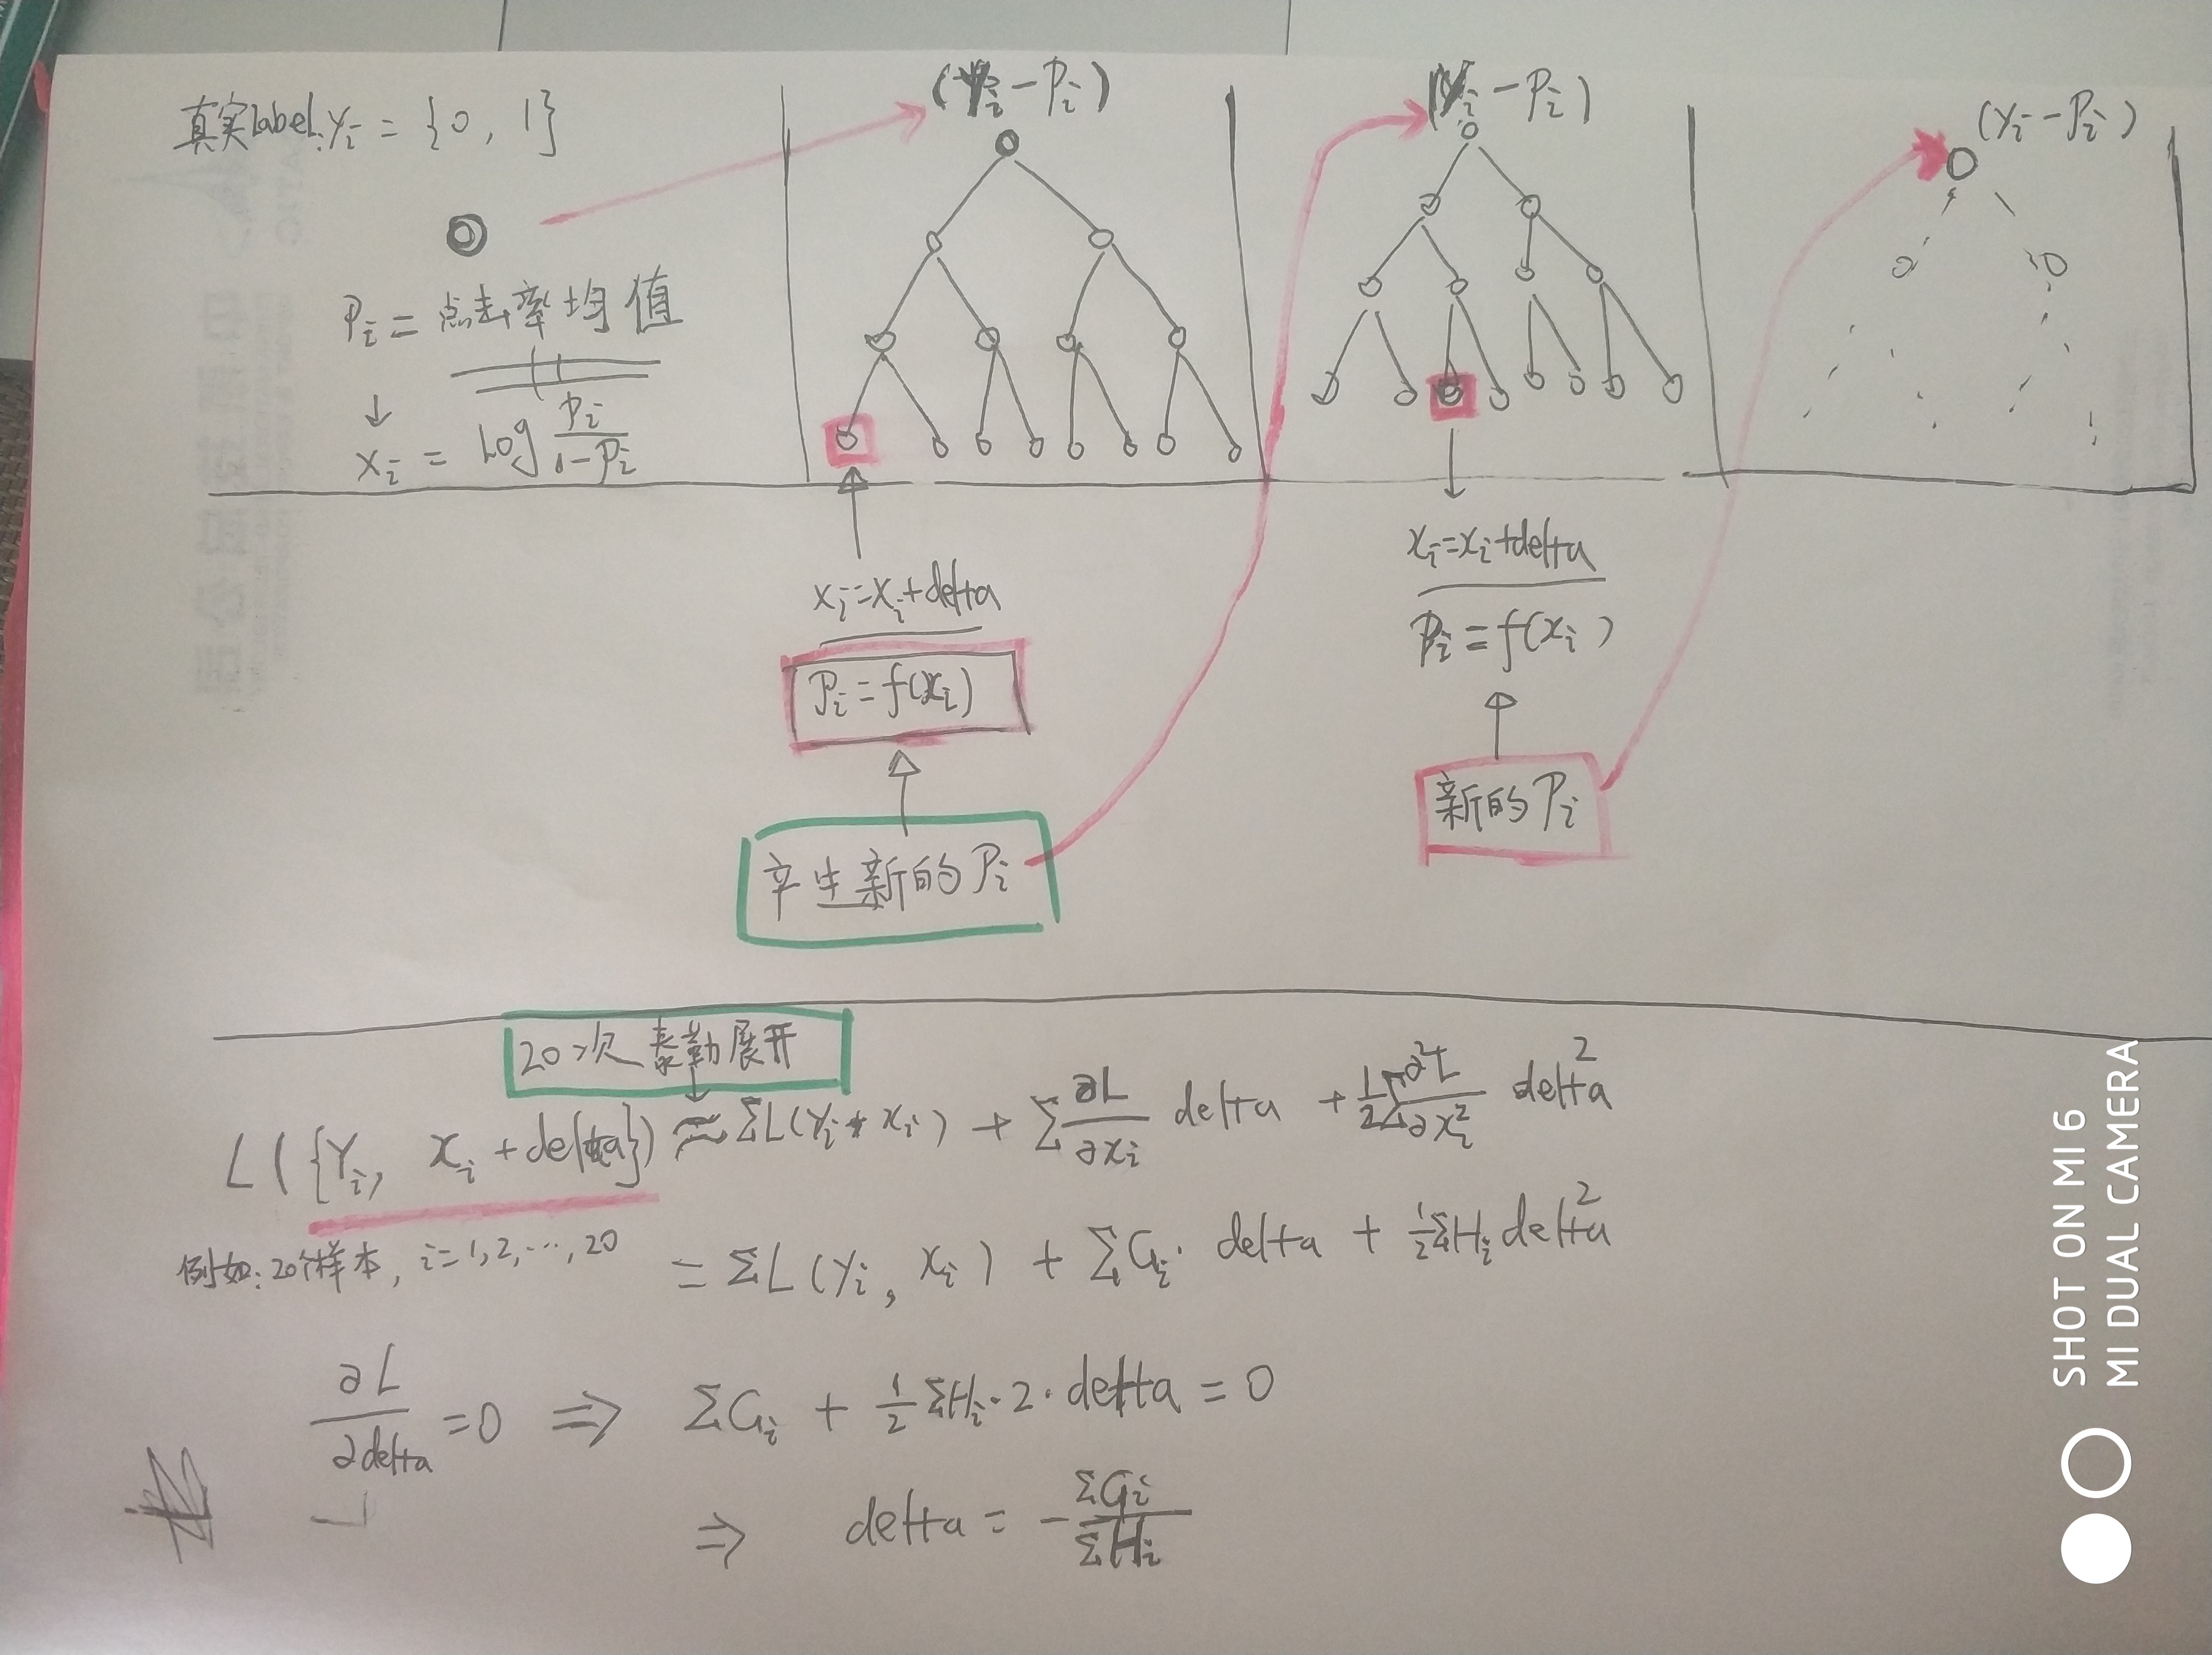 真实label: yi = {0, 1}
Pi = 点击率均值
↓
xi = Log Pi/1-Pi
(Yi - Pi)
(Yi - Pi)
(Yi - Pi)
xi = xi + delta
Pi = f(xi)
产生新的 Pi
xi = xi + delta
Pi = f(xi)
新的 Pi
20次 泰勒展开
L({Yi, xi + delta}) ≈ ΣL(Yi, xi) + Σ ∂L/∂xi delta + 1/2 Σ ∂²L/∂xi² delta²
例如: 20个样本, i = 1, 2, ..., 20
= ΣL(yi, xi) + ΣGi · delta + 1/2 ΣHi delta²
∂L/∂delta = 0 ⇒ ΣGi + 1/2 ΣHi · 2 · delta = 0
⇒ delta = - ΣGi/ΣHi
SHOT ON MI 6
MI DUAL CAMERA